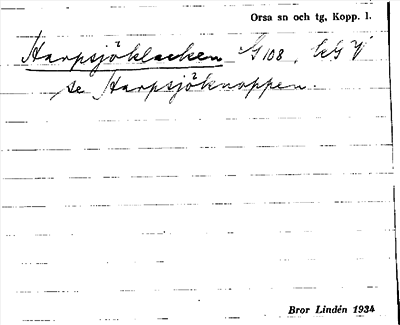 Orsa sn och tg, Kopp. l.
Harpsjöklacken G 108,
se Harpsjöknoppen.
Bror Lindén 1934